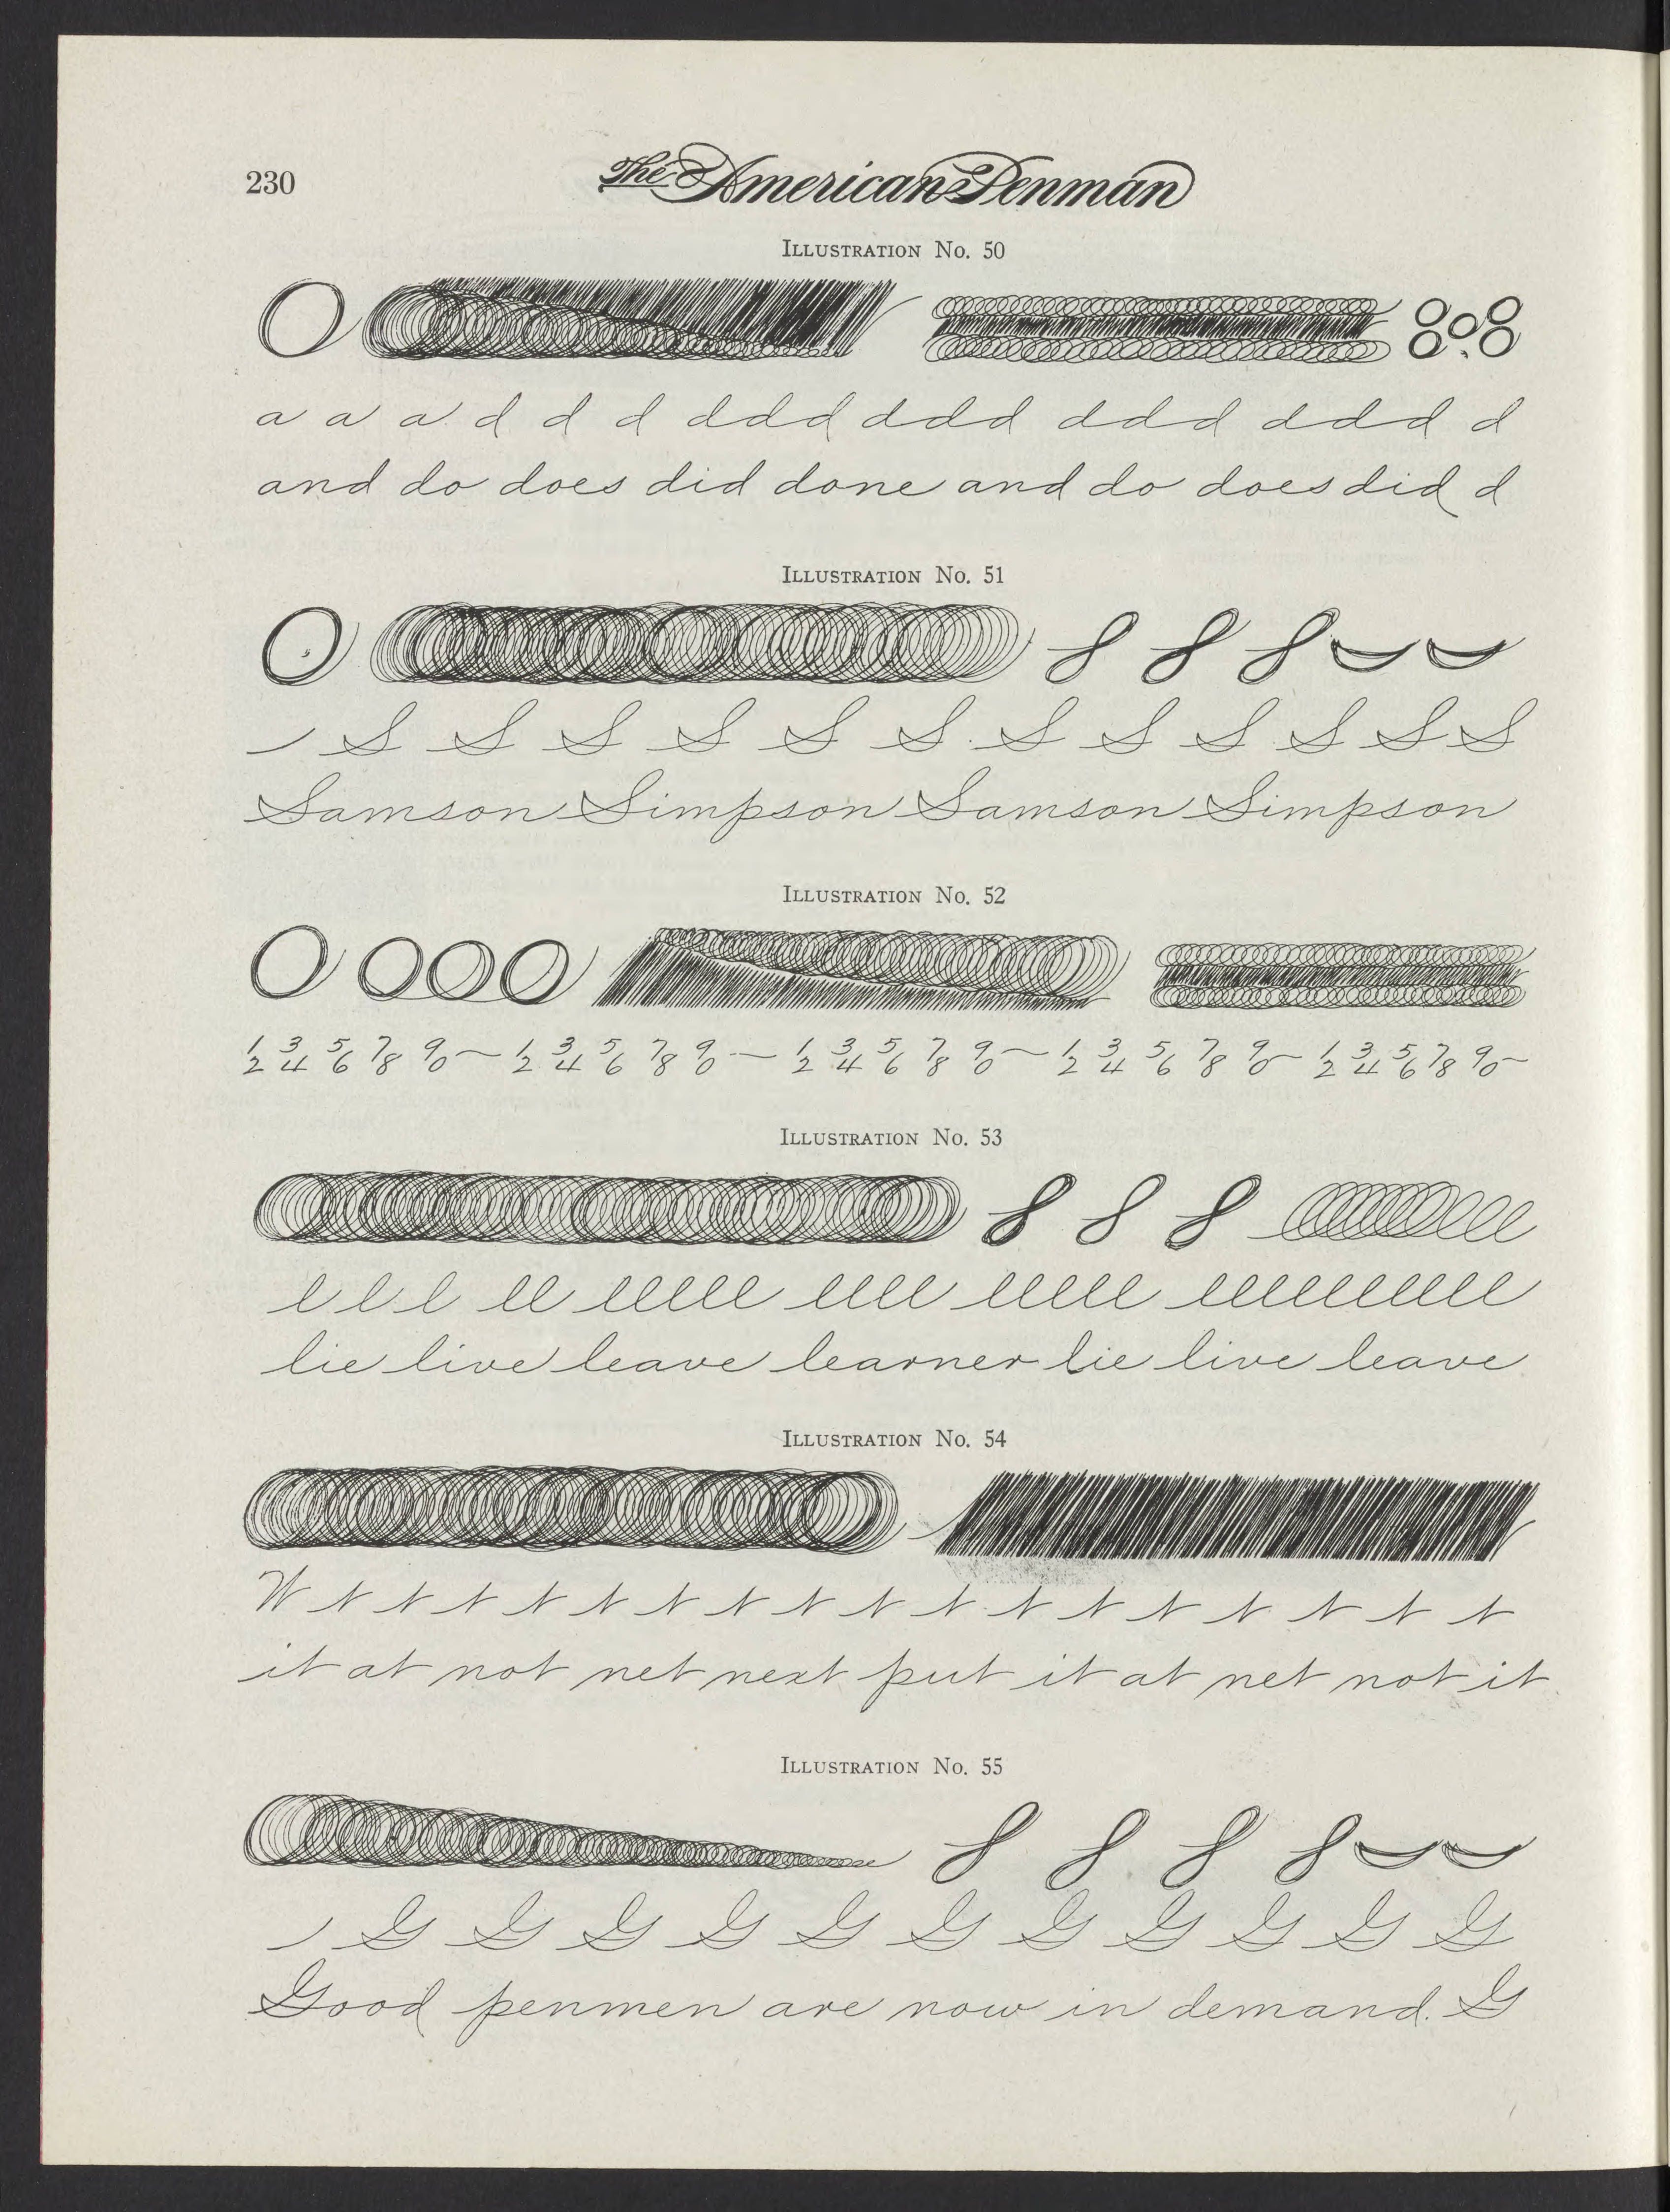 230
The American Penman
Illustration No. 50
a a a d d d ddd ddd ddd ddd d
and do does did done and do does did d
Illustration No. 51
S S S S S S S S S S S S
Samson Simpson Samson Simpson
Illustration No. 52
1 3 5 7 9 1 3 5 7 9 1 3 5 7 9 1 3 5 7 9 1 3 5 7 9
2 4 6 8 0 2 4 6 8 0 2 4 6 8 0 2 4 6 8 0 2 4 6 8 0
Illustration No. 53
l l l ll lllll llll lllll llllllllll
lie live leave learner lie live leave
Illustration No. 54
t t t t t t t t t t t t t t t t t
it at not net next put it at net not it
Illustration No. 55
G G G G G G G G G G G
Good penmen are now in demand. G